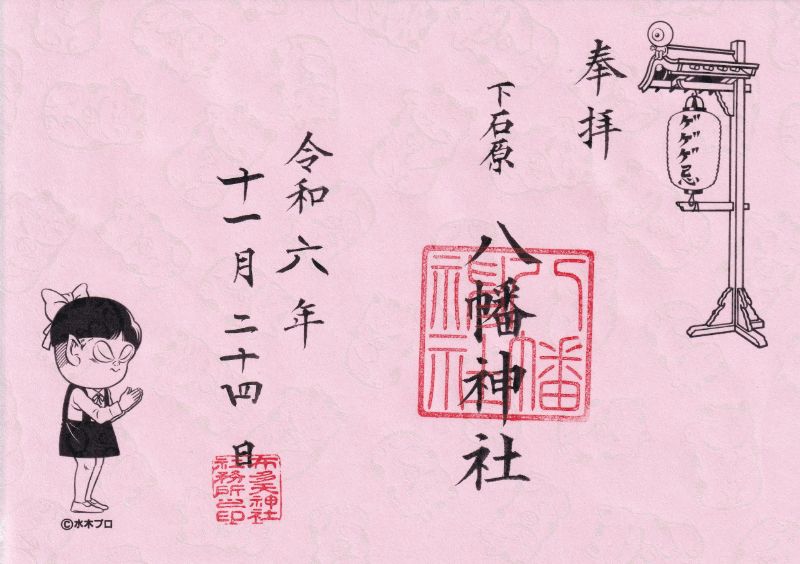 ゲゲゲ忌
奉拝
下石原
八幡神社
八幡神社
令和六年
十一月二十四日
布多天神社
社務所之印
©水木プロ